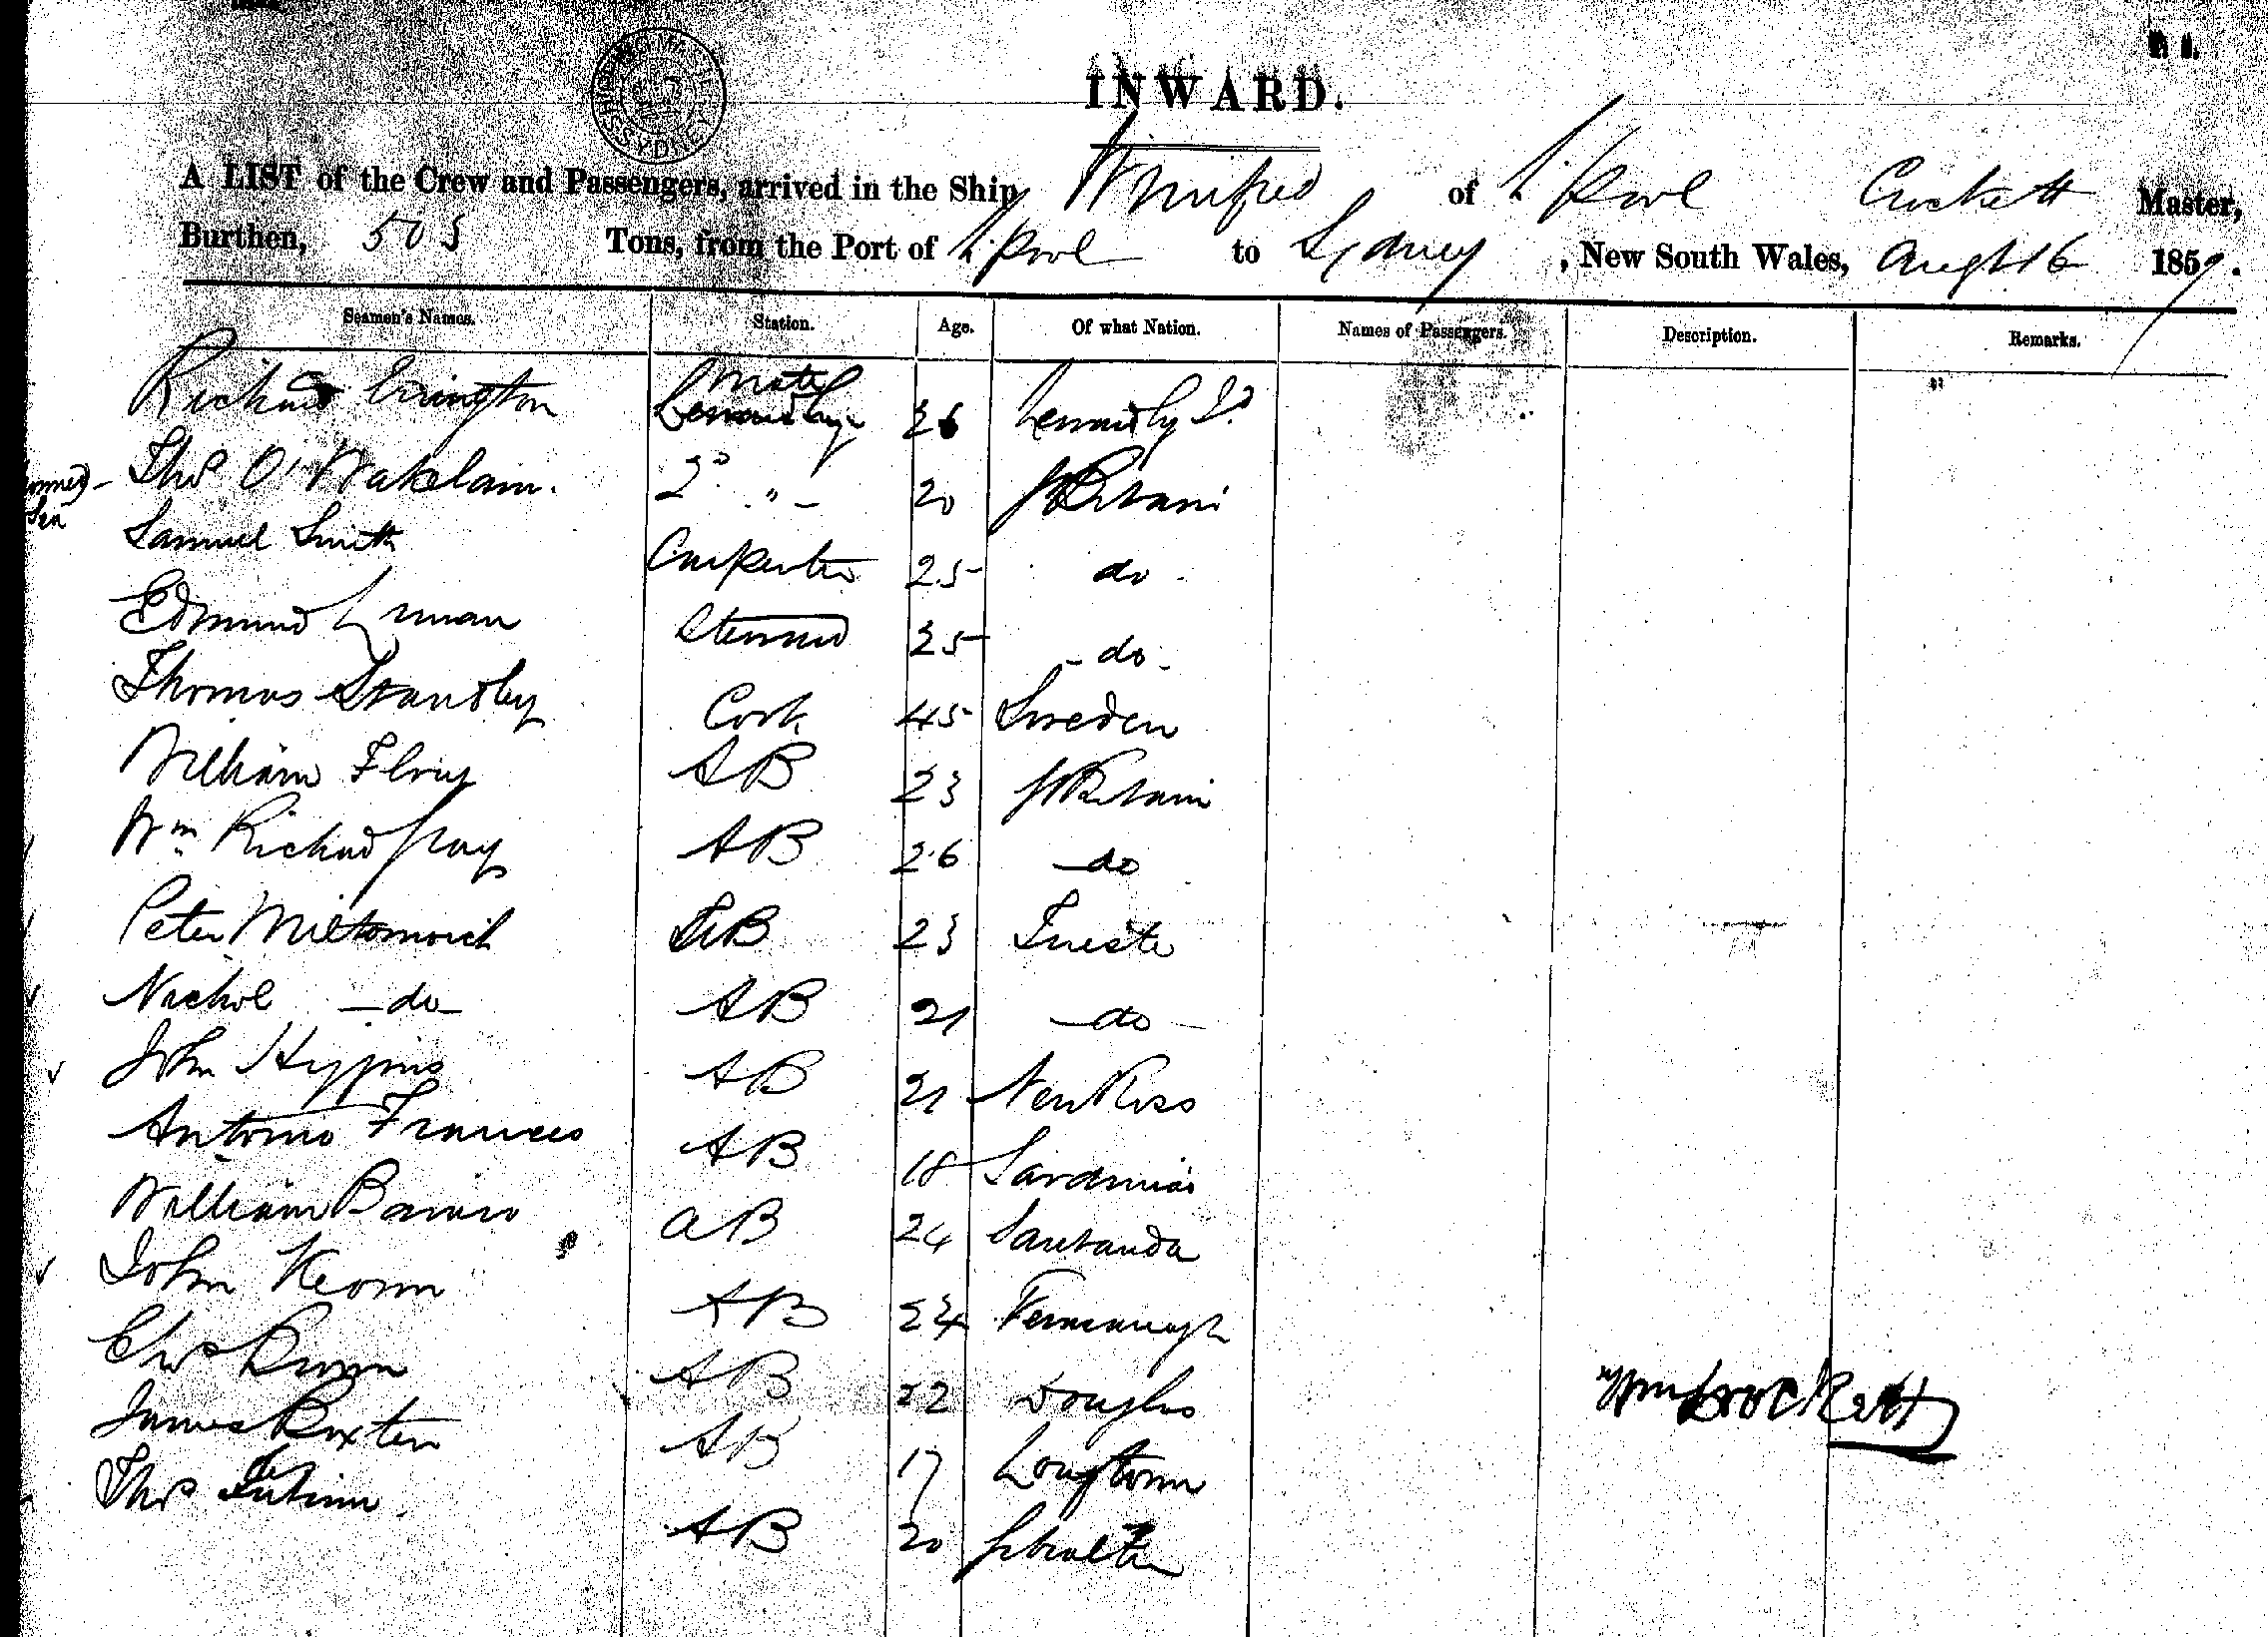 INWARD.
A LIST of the Crew and Passengers, arrived in the Ship Winifred of L'Pool Crockett Master,
Burthen, 505 Tons, from the Port of L'Pool to Sydney, New South Wales, Augt 16 1859.
Seamen's Names. Station. Age. Of what Nation. Names of Passengers. Description. Remarks.
Richard Errington Mate 26
Thos O' Wakelam. 2d " - 20 G Britain
Samuel Smith Carpenter 25 do
Edmund Steward 35 - do -
Thomas Standley Cook 45 Sweden
William Flory AB 23 G Britain
Wm Richard Gray AB 26 - do
Peter Miltomovich AB 23 Trieste
Nichol - do - AB 21 - do -
John Higgins AB 21 New Ross
Antonio Frances AB 18 Sardinia
William AB 24 Santanda
John Keown AB 24 Fermanagh
Chas Dunn AB 22 Douglas
James Buxton AB 17 Longtown
Thos AB 20 Gibralter
Wm Crockett